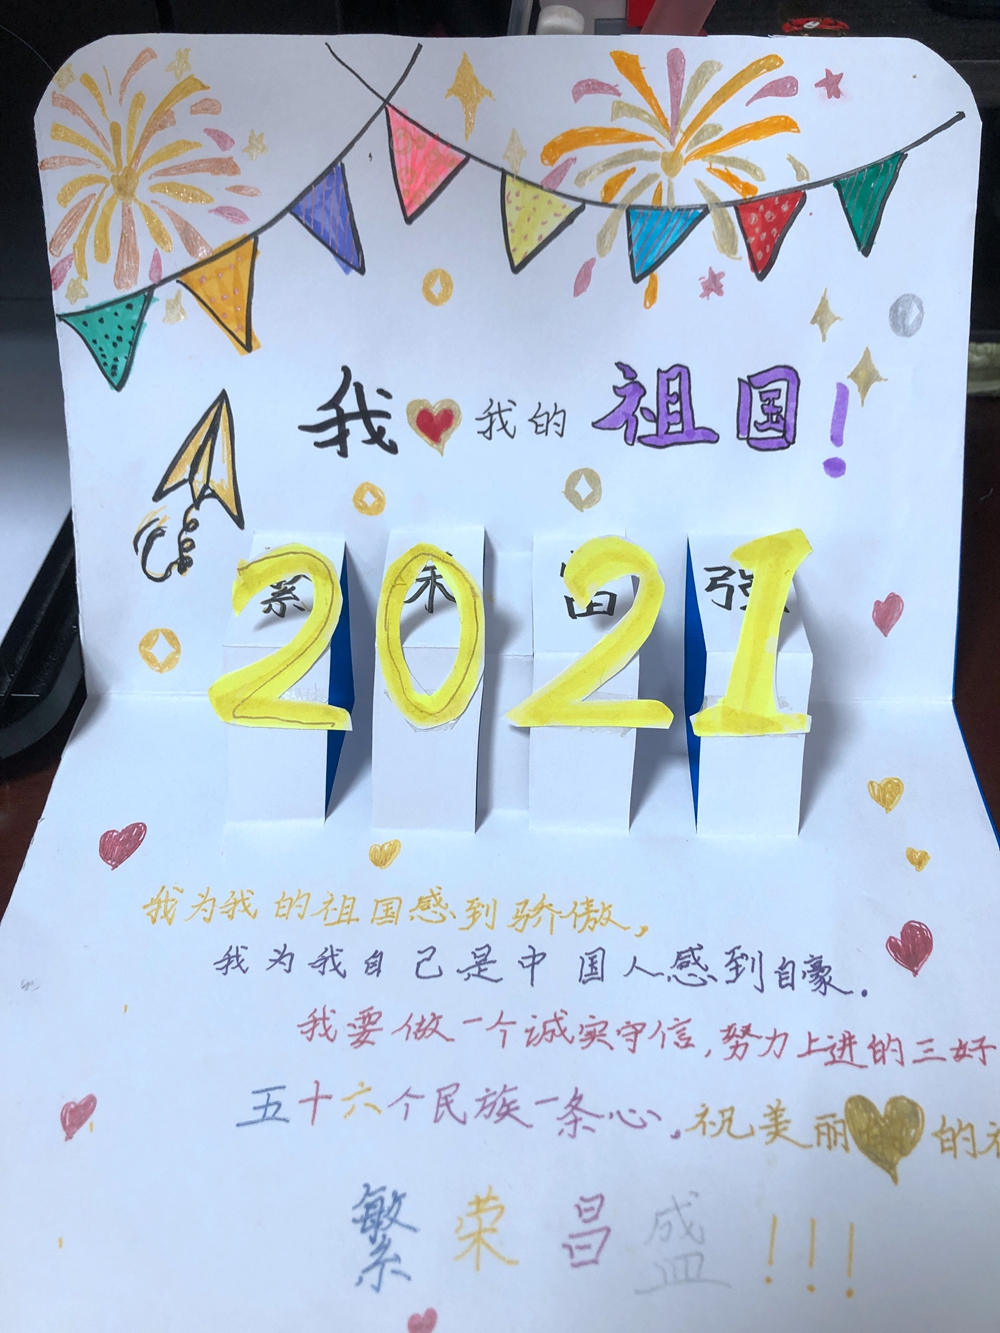 我❤我的祖国!
富强
2021
我为我的祖国感到骄傲,
我为我自己是中国人感到自豪.
我要做一个诚实守信,努力上进的三好
五十六个民族一条心,祝美丽的
繁荣昌盛!!!